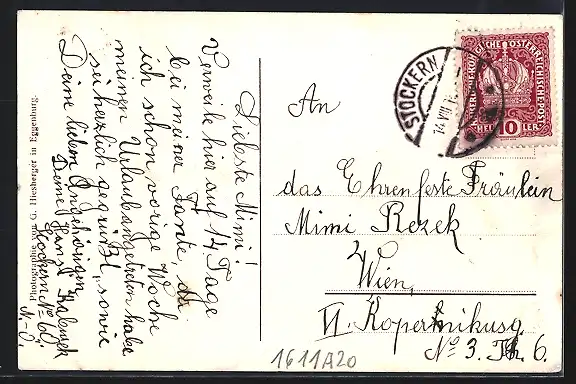 Liebste Mimi!
Verweile hier auf 14 Tage
bei meiner Tante, da
ich schon vorige Woche
meinen Urlaub angetreten habe
sei herzlich gegrüßt, sowie
Deine lieben Angehörigen
Deine Hansi
Stockern No 60.
N.-Ö.
Photographie von C. Hiesberger in Eggenburg.
An
das Ehrenfeste Fräulein
Mimi Rezek
Wien,
VI. Kopernikusg.
No 3. Th. 6.
STOCKERN
14 VIII
KAISERLICHE KÖNIGLICHE ÖSTERREICHISCHE POST
HELLER
10
1611A20